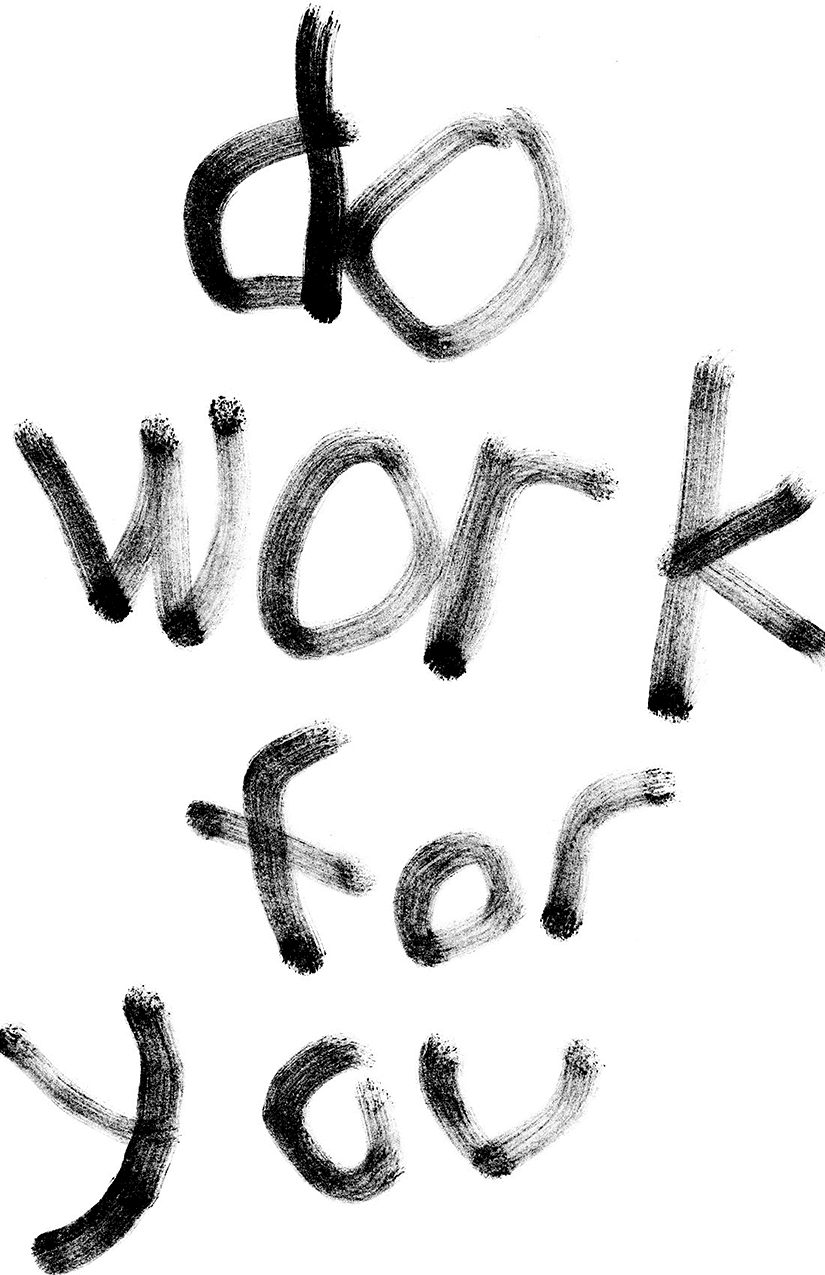 do
work
for
you